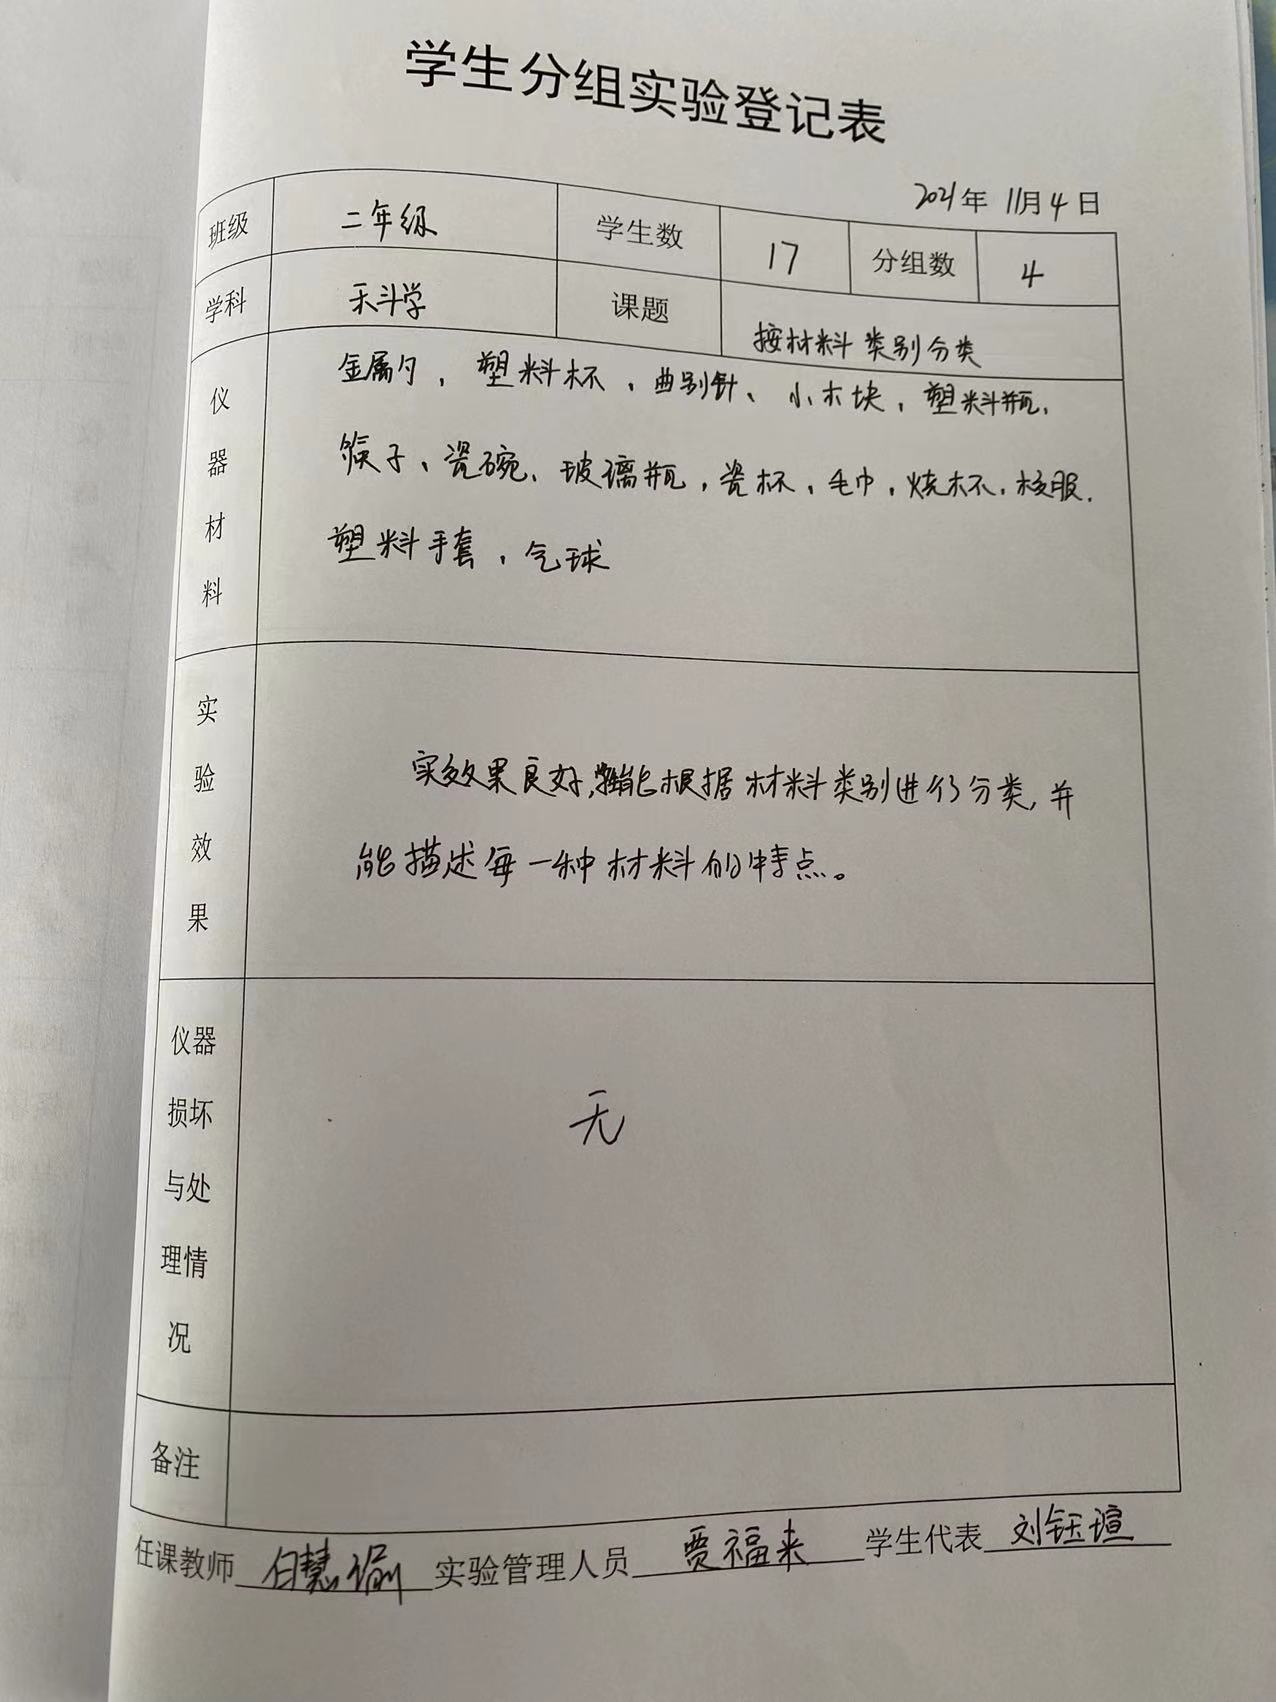 学生分组实验登记表
2021年 11月4日
班级 二年级 学生数 17 分组数 4
学科 科学 课题 按材料类别分类
仪器材料
金属勺，塑料杯、曲别针、小木块，塑料瓶，
筷子、瓷碗、玻璃瓶，瓷杯，毛巾，烧杯，校服，
塑料手套，气球
实验效果
效果良好，能根据材料类别进行分类，并
能描述每一种材料的特点。
仪器
损坏
与处
理情
况
无
备注
任课教师 白慧 实验管理人员 贾福来 学生代表 刘钰瑄